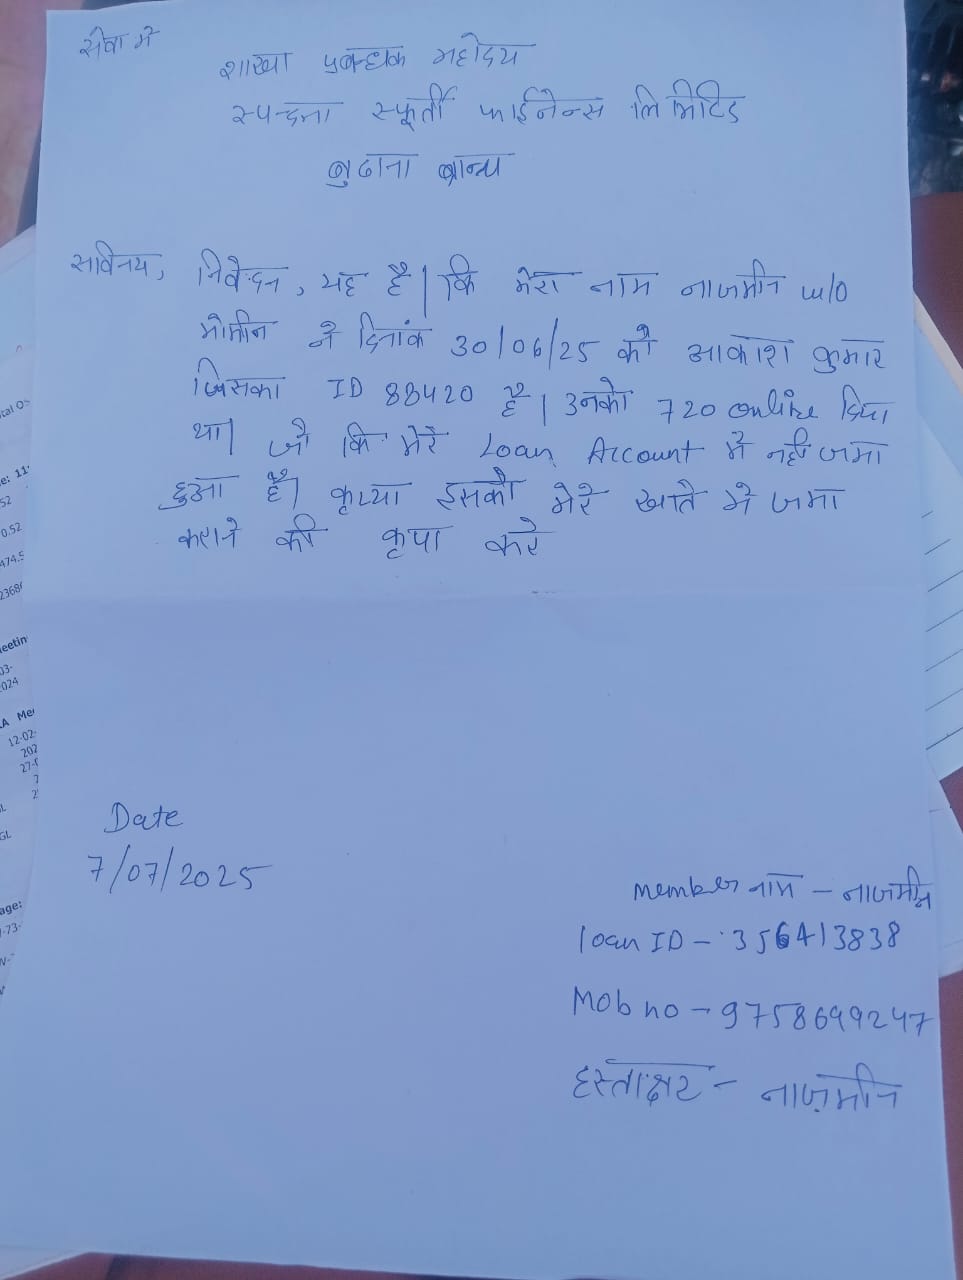 सेवा में
शाखा प्रबन्धक महोदय
स्पन्दना स्फूर्ती फाईनेन्स लिमिटिड
बुढाना ब्रान्च
सविनय, निवेदन, यह है। कि मेरा नाम नाजमीन w/o
मोमीन ने दिनांक 30/06/25 को आकाश कुमार
जिसका ID 88420 है। उनको 720 online दिया
था। जो कि मेरे Loan Account में नही जमा
हुआ है। कृप्या इसको मेरे खाते मे जमा
कराने की कृपा करे
Date
7/07/2025
member नाम - नाजमीन
loan ID - 356413838
Mob no - 9758699247
हस्ताक्षर - नाज़मीन